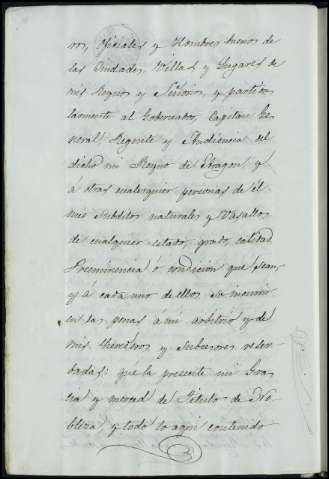 ros, Oficiales y Hombres buenos de
las Ciudades, Villas y Lugares de
mis Reynos y Señorios, y particu
larmente al Gobernador, Capitan Ge
neral, Regente y Audiencia del
dicho mi Reyno de Aragon, y
á otras cualesquier personas de el
mis Subditos naturales y Vasallos
de cualquier estado, grado, calidad,
Preeminencia ó condicion que sean,
y á cada uno de ellos so incurrir
en las penas á mi arbitrio y de
mis herederos y Subcesores reser
badas: que la presente mi Gra
cia y merced de Titulo de No
bleza, y todo lo aqui contenido